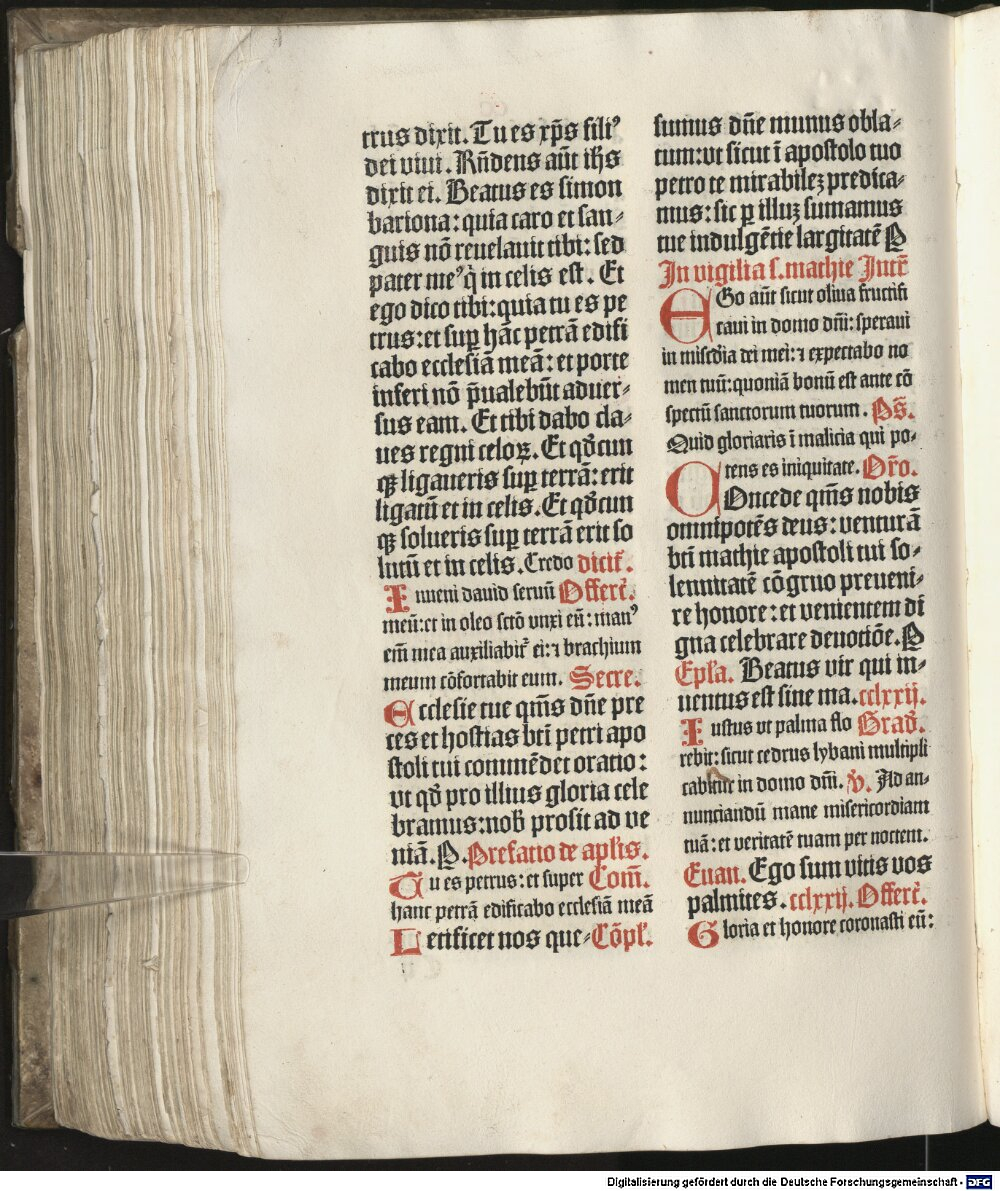 trus dixit. Tu es xp̄s fili⁹
dei viui. Rn̄dens aūt ih̄s
dixit ei. Beatus es simon
bariona: quia caro et san⸗
guis nō reuelauit tibi: sed
pater me⁹ q̇ in celis est. Et
ego dico tibi: quia tu es pe
trus: et suꝑ hāc petrā edifi
cabo ecclesiā meā: et porte
inferi nō p̄ualebūt aduer⸗
sus eam. Et tibi dabo cla⸗
ues regni celoꝝ. Et qd̄cun
qꝫ ligaueris suꝑ terrā: erit
ligatū et in celis. Et qd̄cun
qꝫ solueris suꝑ terrā erit so
lutū et in celis. Credo dicit᷑.
Inueni dauid seruū Offert̄.
meū: et in oleo sctō vnxi eū: man⁹
em̄ mea auxiliabit᷑ ei: ⁊ brachium
meum cōfortabit eum. Secre.
Ecclesie tue qm̄s dn̄e pre
ces et hostias bt̄i petri apo
stoli tui commēdet oratio:
vt qd̄ pro illius gloria cele
bramus: nob̄ prosit ad ve
niā. P. Prefatio de apl̄is.
Tu es petrus: et super Com̄.
hanc petrā edificabo ecclesiā meā
Letificet nos que⸗ Cōpl̄.
sumus dn̄e munus obla⸗
tum: vt sicut ī apostolo tuo
petro te mirabileꝫ predica⸗
mus: sic ꝑ illuꝫ sumamus
tue indulgētie largitatē P
In vigilia s. mathie Intr̄
EGo aūt sicut oliua fructifi
caui in domo dn̄i: speraui
in misc̄dia dei mei: ⁊ expectabo no
men tuū: quoniā bonū est ante cō
spectū sanctorum tuorum. Ps̄.
Quid gloriaris ī malicia qui po⸗
tens es iniquitate. Or̄o.
COncede qm̄s nobis
omnipotēs deus: venturā
bt̄i mathie apostoli tui so⸗
lennitatē cōgruo preueni⸗
re honore: et venientem di
gna celebrare deuotiōe. P
Epl̄a. Beatus vir qui in⸗
uentus est sine ma. cclxxij.
Iustus vt palma flo Grad̄.
rebit: sicut cedrus lybani multipli
cabitur in domo dn̄i. v̄. Ad an⸗
nunciandū mane misericordiam
tuā: et veritatē tuam per noctem.
Euan. Ego sum vitis vos
palmites. cclxxij. Offert̄.
Gloria et honore coronasti eū:
Digitalisierung gefördert durch die Deutsche Forschungsgemeinschaft - DFG